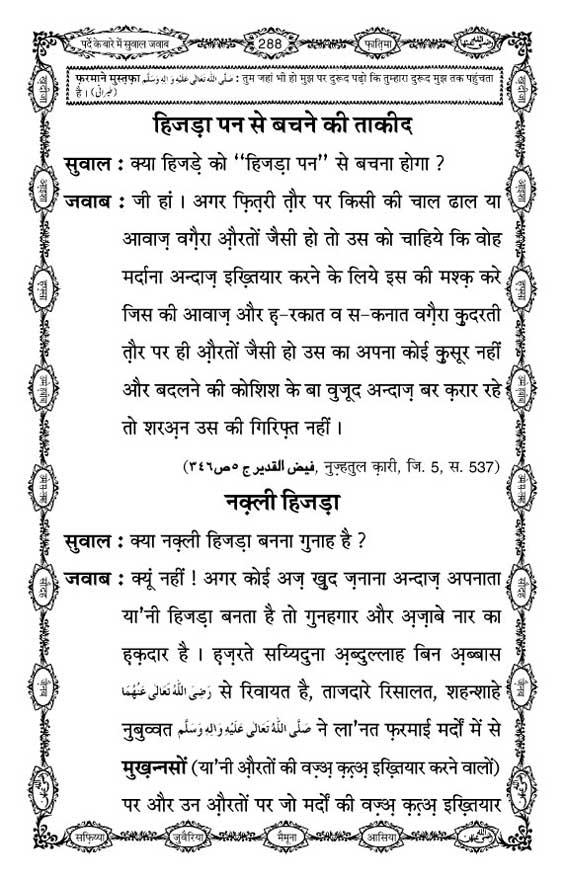 पर्दे के बारे में सुवाल जवाब
288
फ़ातिमा
फ़रमाने मुस्तफ़ा صَلَّى اللّٰهُ تَعَالٰى عَلَيْهِ وَاٰلِهٖ وَسَلَّم : तुम जहां भी हो मुझ पर दुरूद पढ़ो कि तुम्हारा दुरूद मुझ तक पहुंचता
है । (طبرانی)
हिजड़ा पन से बचने की ताकीद
सुवाल : क्या हिजड़े को “हिजड़ा पन” से बचना होगा ?
जवाब : जी हां । अगर फ़ित़री त़ौर पर किसी की चाल ढाल या
आवाज़ वग़ैरा औ़रतों जैसी हो तो उस को चाहिये कि वोह
मर्दाना अन्दाज़ इख़्तियार करने के लिये इस की मश्क़ करे
जिस की आवाज़ और ह़-रकात व स-कनात वग़ैरा क़ुदरती
त़ौर पर ही औ़रतों जैसी हो उस का अपना कोई क़ुसूर नहीं
और बदलने की कोशिश के बा वुजूद अन्दाज़ बर क़रार रहे
तो शरअ़न उस की गिरिफ़्त नहीं ।
(فیض القدیر ج ۵ ص ۳۴۶, नुज़्हतुल क़ारी, जि. 5, स. 537)
नक़्ली हिजड़ा
सुवाल : क्या नक़्ली हिजड़ा बनना गुनाह है ?
जवाब : क्यूं नहीं ! अगर कोई अज़ ख़ुद ज़नाना अन्दाज़ अपनाता
या’नी हिजड़ा बनता है तो गुनहगार और अ़ज़ाबे नार का
ह़क़दार है । ह़ज़रते सय्यिदुना अ़ब्दुल्लाह बिन अ़ब्बास
رَضِىَ اللّٰهُ تَعَالٰى عَنْهُمَا से रिवायत है, ताजदारे रिसालत, शहन्शाहे
नुबुव्वत صَلَّى اللّٰهُ تَعَالٰى عَلَيْهِ وَاٰلِهٖ وَسَلَّم ने ला’नत फ़रमाई मर्दों में से
मुख़न्नसों (या’नी औ़रतों की वज़्अ़ क़त़्अ़ इख़्तियार करने वालों)
पर और उन औ़रतों पर जो मर्दों की वज़्अ़ क़त़्अ़ इख़्तियार
सफ़िय्या
जुवैरिया
मैमूना
आसिया